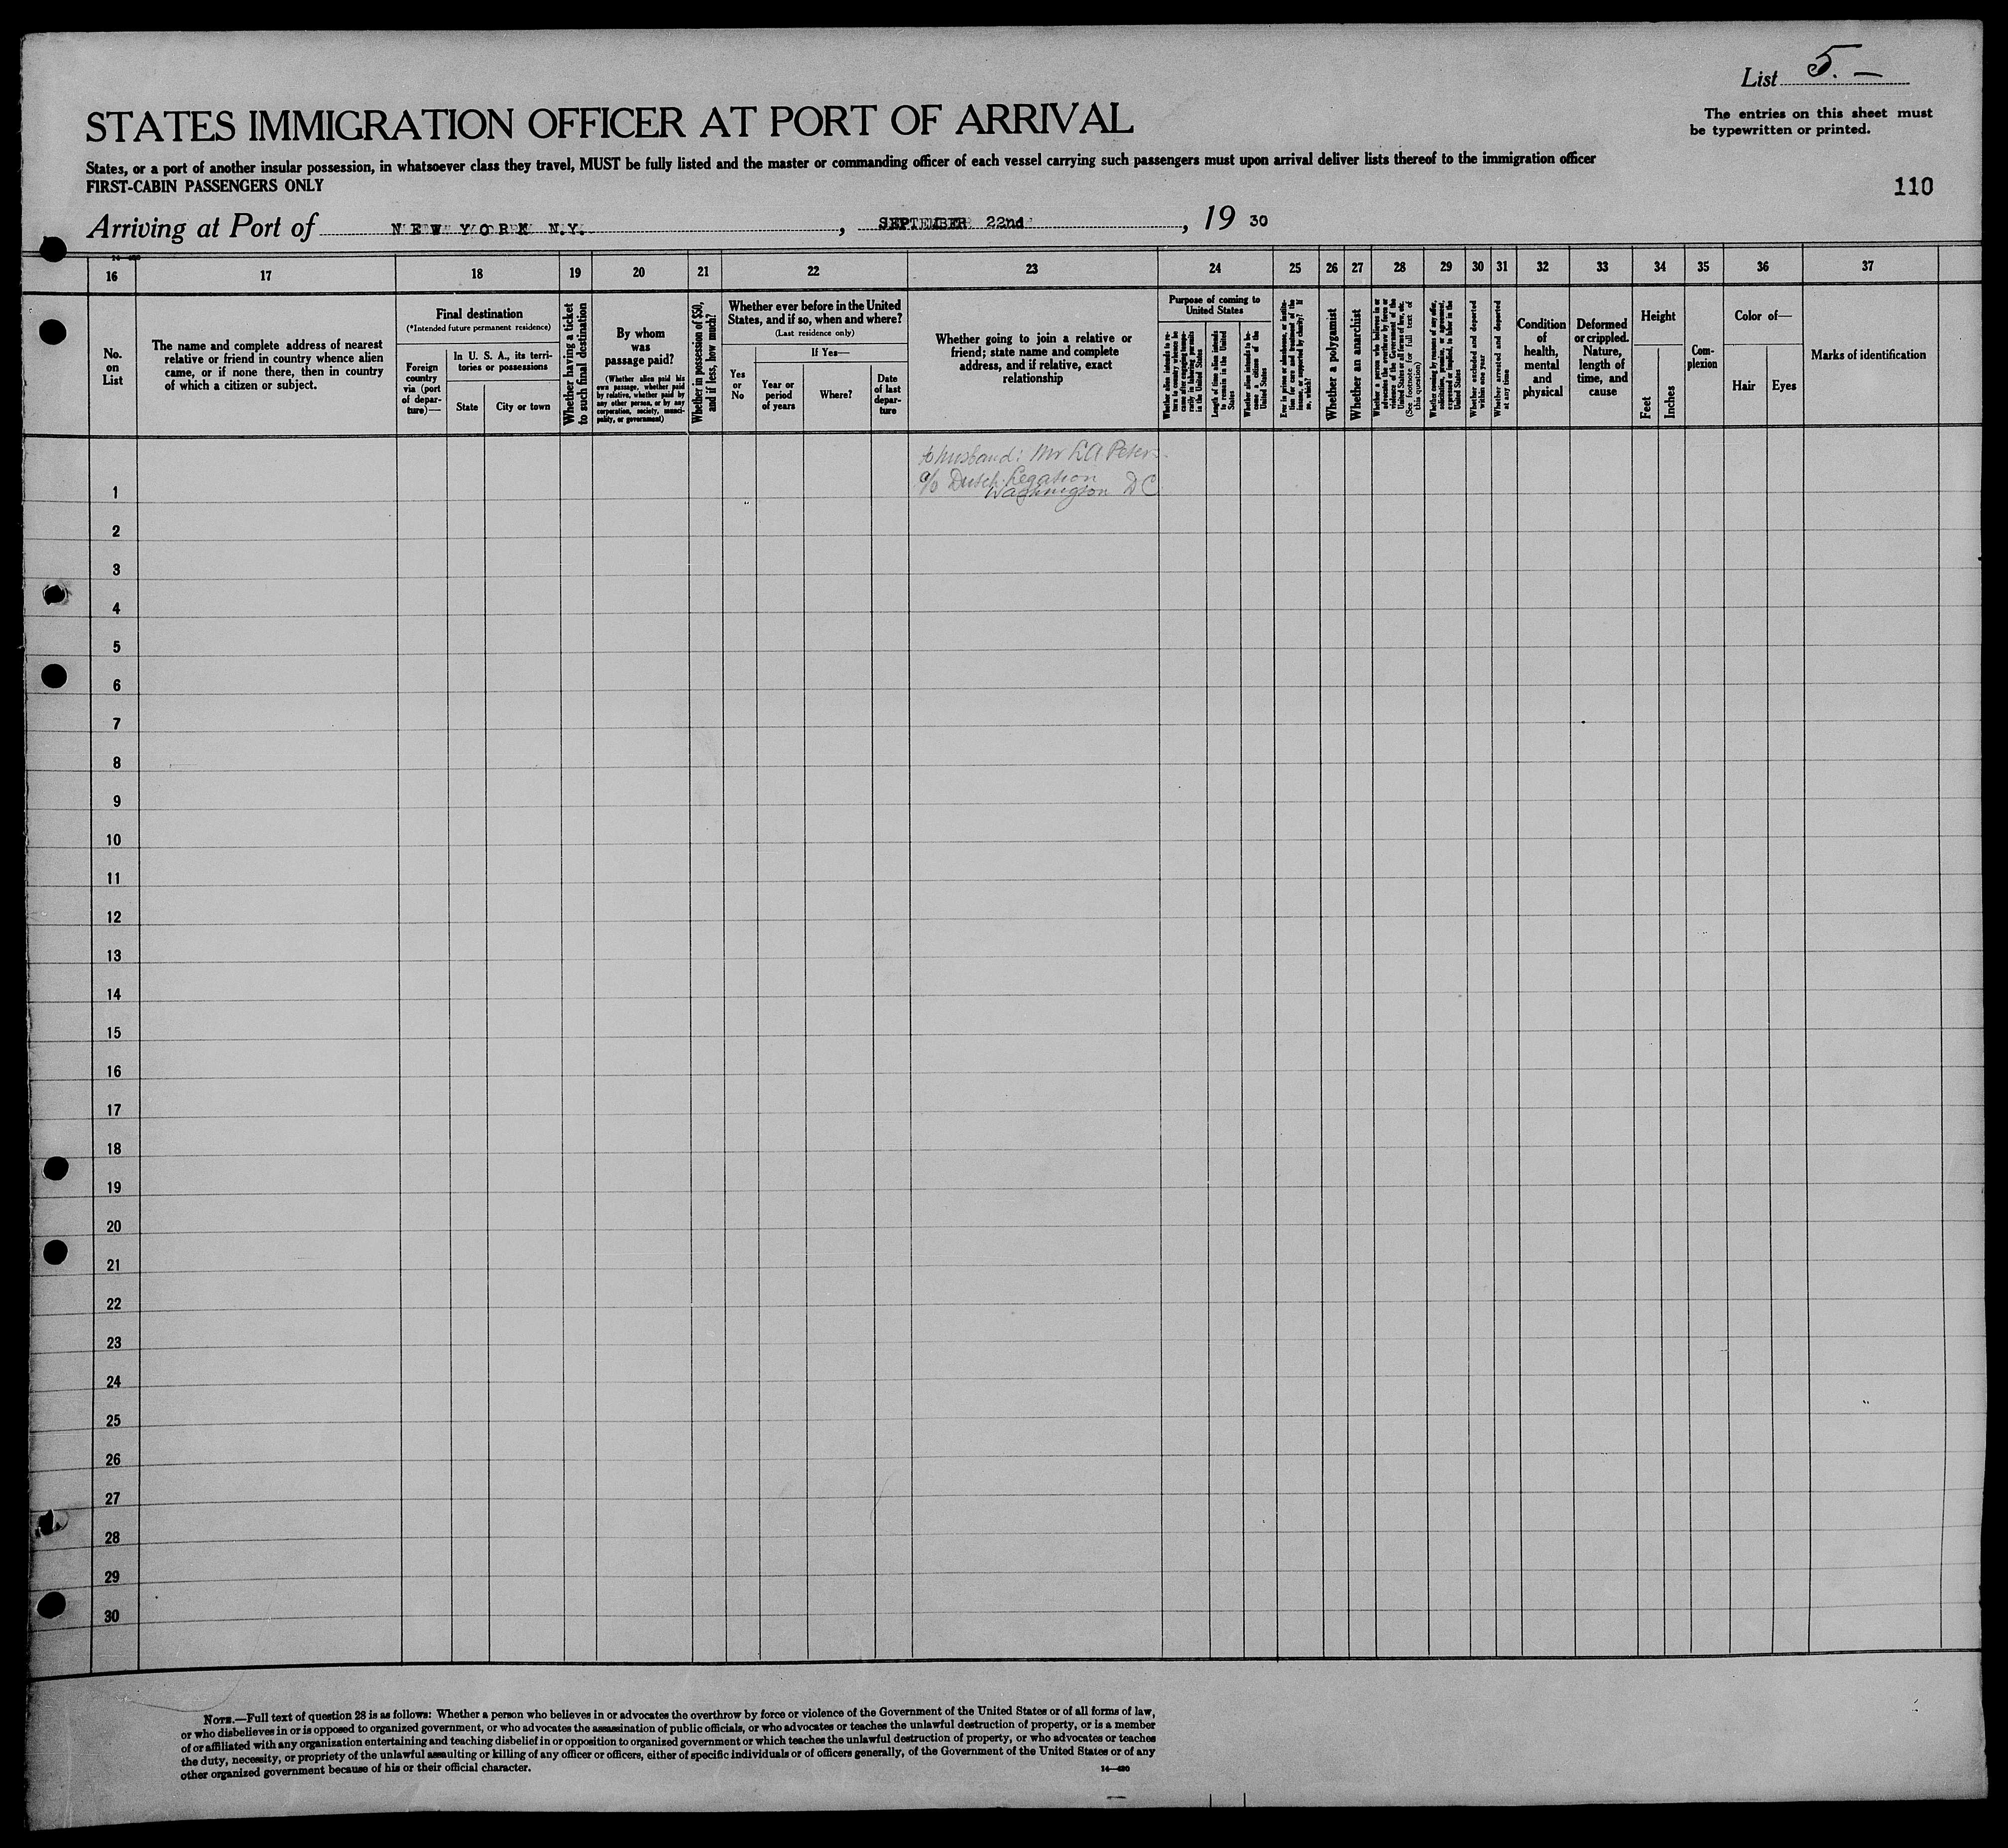 List 5. —
The entries on this sheet must
be typewritten or printed.
STATES IMMIGRATION OFFICER AT PORT OF ARRIVAL
States, or a port of another insular possession, in whatsoever class they travel, MUST be fully listed and the master or commanding officer of each vessel carrying such passengers must upon arrival deliver lists thereof to the immigration officer
FIRST-CABIN PASSENGERS ONLY
110
Arriving at Port of NEW YORK N.Y., SEPTEMBER 22nd, 19 30
16 17 18 19 20 21 22 23 24 25 26 27 28 29 30 31 32 33 34 35 36 37
No.
on
List
The name and complete address of nearest
relative or friend in country whence alien
came, or if none there, then in country
of which a citizen or subject.
Final destination
(*Intended future permanent residence)
Foreign
country
via (port
of depar-
ture)—
In U. S. A., its terri-
tories or possessions
State
City or town
Whether having a ticket
to such final destination
By whom
was
passage paid?
(Whether alien paid his
own passage, whether paid
by relative, whether paid by
any other person, or by any
corporation, society, munici-
pality, or government)
Whether in possession of $50,
and if less, how much?
Whether ever before in the United
States, and if so, when and where?
(Last residence only)
If Yes—
Yes
or
No
Year or
period
of years
Where?
Date
of last
depar-
ture
Whether going to join a relative or
friend; state name and complete
address, and if relative, exact
relationship
Purpose of coming to
United States
Whether alien intends to re-
turn to country whence he
came after engaging tempo-
rarily in laboring pursuits
in the United States
Length of time alien intends
to remain in the United
States
Whether alien intends to be-
come a citizen of the
United States
Ever in prison or almshouse, or institu-
tion for care and treatment of the
insane, or supported by charity? If
so, which?
Whether a polygamist
Whether an anarchist
Whether a person who believes in or
advocates the overthrow by force or
violence of the Government of the
United States or all forms of law, etc.
(See footnote for full text of
this question)
Whether coming by reason of any offer,
solicitation, promise, or agreement,
expressed or implied, to labor in the
United States
Whether excluded and deported
within one year
Whether arrested and deported
at any time
Condition
of
health,
mental
and
physical
Deformed
or crippled.
Nature,
length of
time, and
cause
Height
Feet
Inches
Com-
plexion
Color of—
Hair
Eyes
Marks of identification
to husband: Mr LA Peters
c/o Dutch Legation
Washington D C
1
2
3
4
5
6
7
8
9
10
11
12
13
14
15
16
17
18
19
20
21
22
23
24
25
26
27
28
29
30
NOTE.—Full text of question 28 is as follows: Whether a person who believes in or advocates the overthrow by force or violence of the Government of the United States or of all forms of law,
or who disbelieves in or is opposed to organized government, or who advocates the assassination of public officials, or who advocates or teaches the unlawful destruction of property, or is a member
of or affiliated with any organization entertaining and teaching disbelief in or opposition to organized government or which teaches the unlawful destruction of property, or who advocates or teaches
the duty, necessity, or propriety of the unlawful assaulting or killing of any officer or officers, either of specific individuals or of officers generally, of the Government of the United States or of any
other organized government because of his or their official character.
14—430